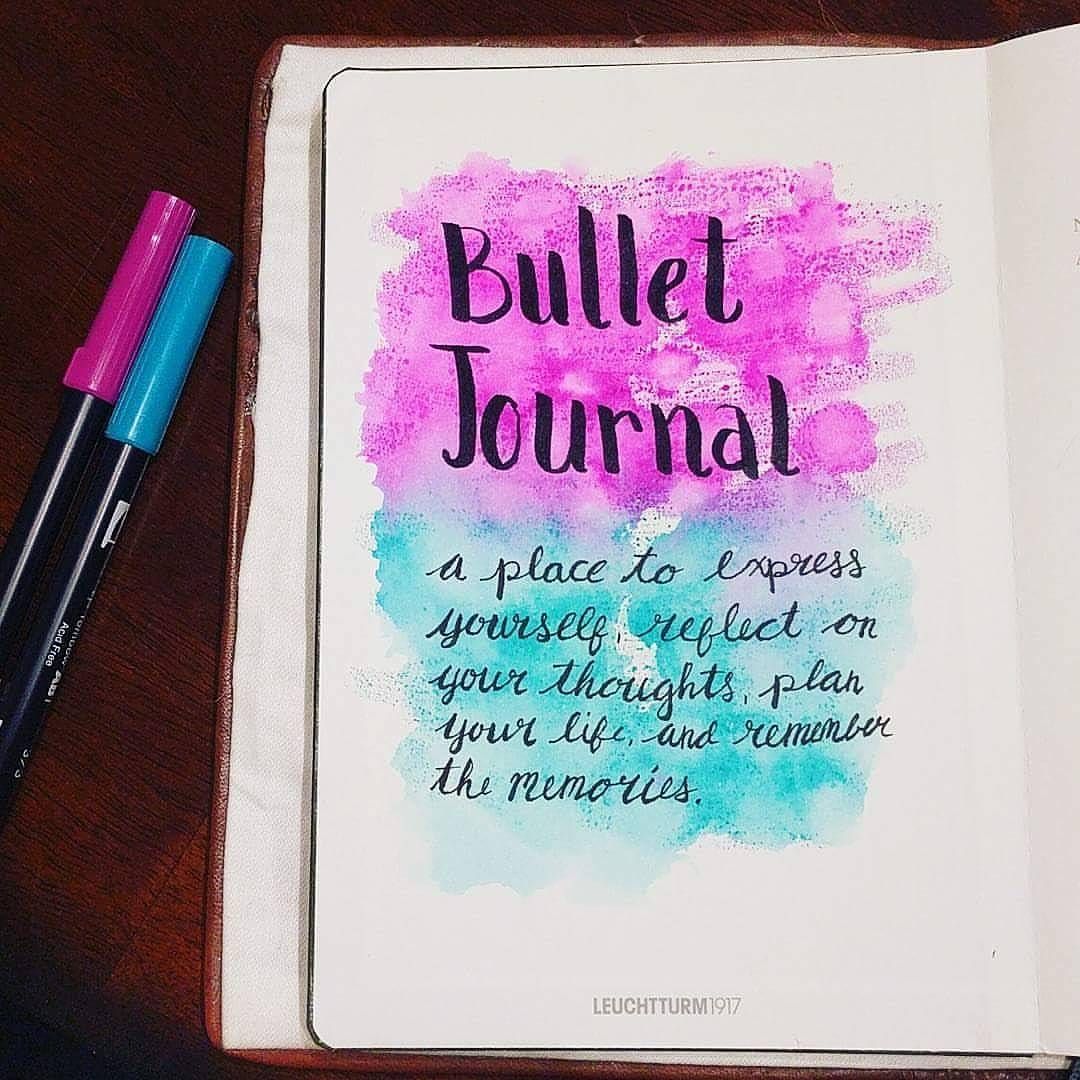 Bullet
Journal
a place to express
yourself, reflect on
your thoughts, plan
your life, and remember
the memories.
LEUCHTTURM1917
Acid Free